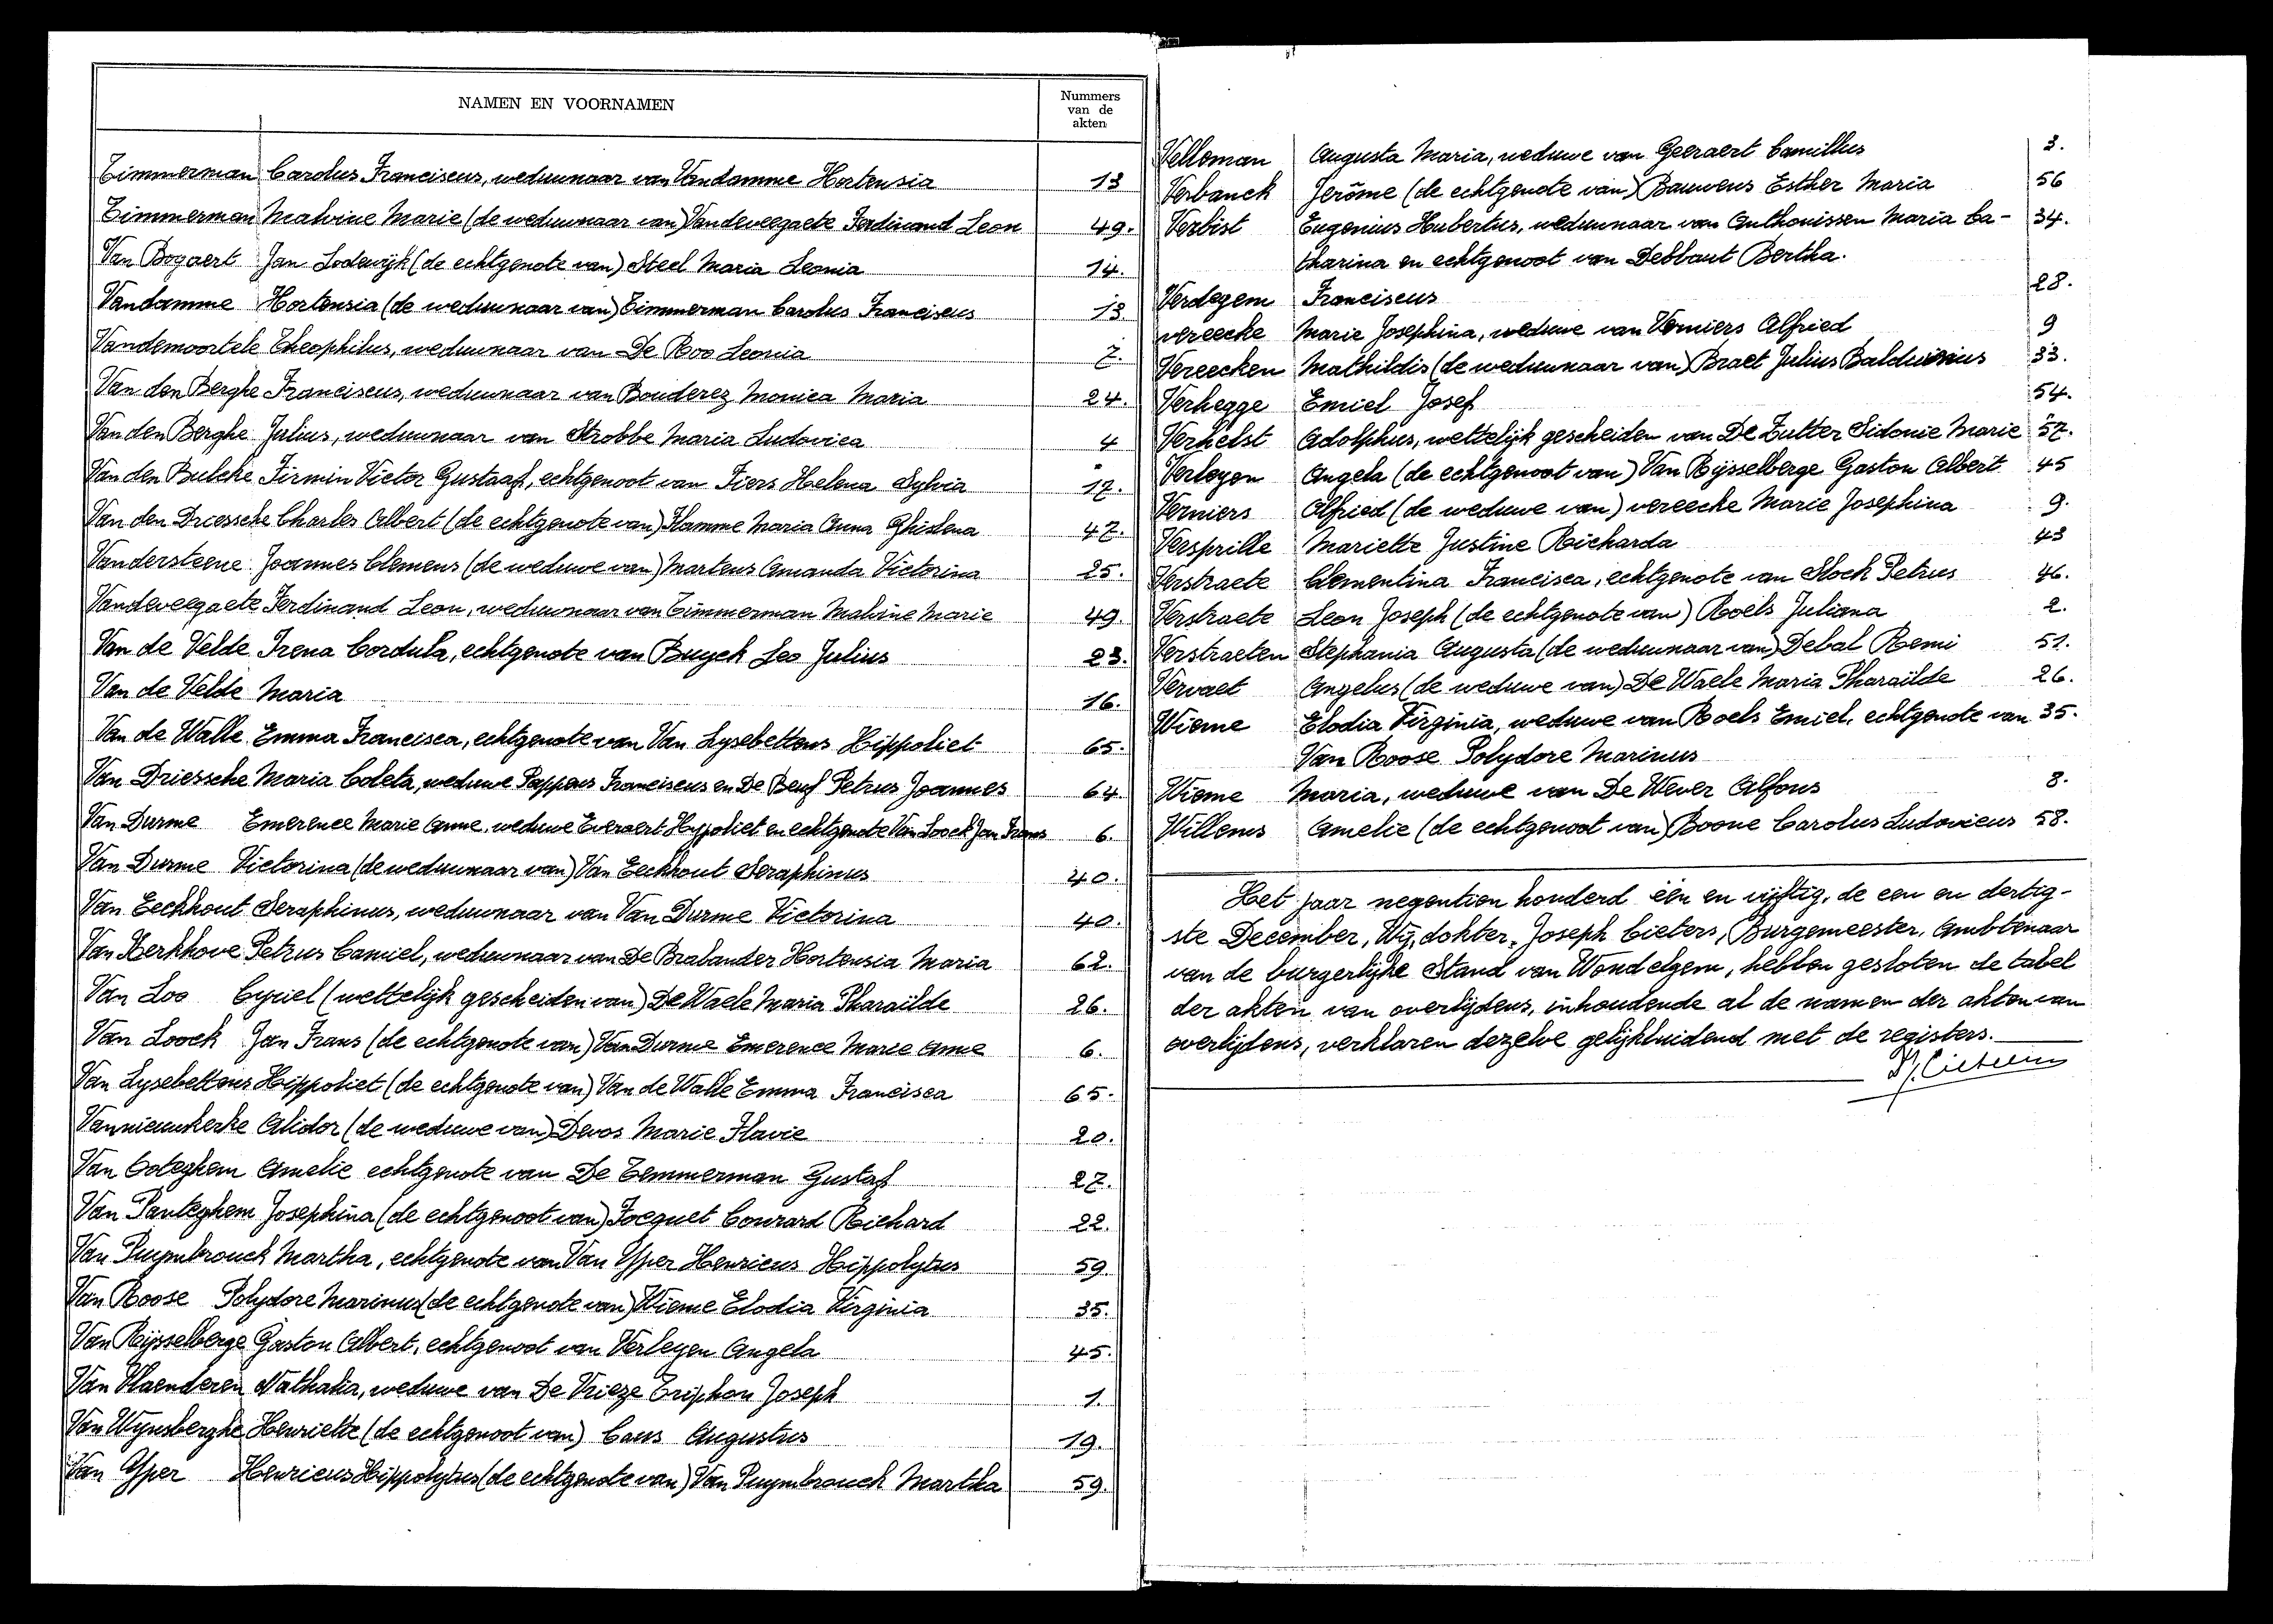 NAMEN EN VOORNAMEN
Nummers
van de
akten
Timmerman Carolus Franciscus, weduwnaar van Vandamme Hortensia 13
Timmerman Malvine Marie (de weduwnaar van) Vandeveegaete Ferdinand Leon 49.
Van Bogaert Jan Lodewijk (de echtgenote van) Steel Maria Leonia 14.
Vandamme Hortensia (de weduwnaar van) Timmerman Carolus Franciscus 13.
Vandemoortele Theophilus, weduwnaar van De Roo Leonia 7.
Van den Berghe Franciscus, weduwnaar van Bouderez Monica Maria 24.
Van den Berghe Julius, weduwnaar van Strobbe Maria Ludovica 4
Van den Bulcke Firmin Victor Gustaaf, echtgenoot van Fiers Helena Sylvia 17.
Van den Driessche Charles Albert (de echtgenote van) Flamme Maria Anna Ghislena 47.
Vandersteene Joannes Clemens (de weduwe van) Martens Amanda Victorina 25.
Vandeveegaete Ferdinand Leon, weduwnaar van Timmerman Malvine Marie 49.
Van de Velde Irena Cordula, echtgenote van Buyck Leo Julius 23.
Van de Velde Maria 16.
Van de Walle Emma Francisca, echtgenote van Van Lysebettens Hippoliet 65.
Van Driessche Maria Coleta, weduwe Pappens Franciscus en De Beuf Petrus Joannes 64.
Van Durme Emerence Marie Anne, weduwe Everaert Hyppoliet en echtgenote Van Loock Jan Frans 6.
Van Durme Victorina (de weduwnaar van) Van Eeckhout Seraphinus 40.
Van Eeckhout Seraphinus, weduwnaar van Van Durme Victorina 40.
Van Kerkhove Petrus Camiel, weduwnaar van De Brabander Hortensia Maria 62.
Van Loo Cyriel (wettelijk gescheiden van) De Waele Maria Pharaïlde 26.
Van Loock Jan Frans (de echtgenote van) Van Durme Emerence Marie Anne 6.
Van Lysebettens Hippoliet (de echtgenote van) Van de Walle Emma Francisca 65.
Vannieuwkerke Alidor (de weduwe van) Devos Marie Flavie 20.
Van Coteghem Amelie echtgenote van De Temmerman Gustaf 27.
Van Panteghem Josephina (de echtgenoot van) Jocquet Conrard Richard 22.
Van Puymbrouck Martha, echtgenote van Van Yper Henricus Hippolytus 59.
Van Roose Polydore Marinus (de echtgenote van) Wieme Elodia Virginia 35.
Van Rijsselberge Gaston Albert, echtgenoot van Verleyen Angela 45.
Van Vlaenderen Nathalia, weduwe van De Vrieze Triphon Joseph 1.
Van Wynsberghe Henriette (de echtgenoot van) Caus Augustus 19.
Van Yper Henricus Hippolytus (de echtgenote van) Van Puymbrouck Martha 59.
Velleman Augusta Maria, weduwe van Geeraert Camillus 3.
Verbanck Jerôme (de echtgenote van) Bauwens Esther Maria 56
Verbist Eugenius Hubertus, weduwnaar van Anthonissen Maria Ca- 34.
tharina en echtgenoot van Debbaut Bertha.
Verdegem Franciscus 28.
Vereecke Marie Josephina, weduwe van Verniers Alfried 9
Vereecken Mathildis (de weduwnaar van) Braet Julius Balduinius 33.
Verhegge Emiel Josef 54.
Verhelst Adolphus, wettelijk gescheiden van De Zutter Sidonie Marie 57.
Verleyen Angela (de echtgenoot van) Van Rijsselberge Gaston Albert 45
Verniers Alfried (de weduwe van) Vereecke Marie Josephina 9.
Versprille Mariette Justine Richarda 43
Verstraete Clementina Francisca, echtgenote van Stock Petrus 46.
Verstraete Leon Joseph (de echtgenote van) Roels Juliana 2.
Verstraeten Stephania Augusta (de weduwnaar van) Debal Remi 51.
Vervaet Angelus (de weduwe van) De Waele Maria Pharaïlde 26.
Wieme Elodia Virginia, weduwe van Roels Emiel, echtgenote van 35.
Van Roose Polydore Marinus
Wieme Maria, weduwe van De Wever Alfons 8.
Willems Amelie (de echtgenoot van) Boone Carolus Ludovicus 58.
Het jaar negentien honderd één en vijftig, de een en dertig-
ste December, Wij, dokter, Joseph Cieters, Burgemeester, Ambtenaar
van de burgerlijke Stand van Wondelgem, hebben gesloten de tabel
der akten van overlijdens, inhoudende al de namen der akten van
overlijdens, verklaren dezelve gelijkluidend met de registers.